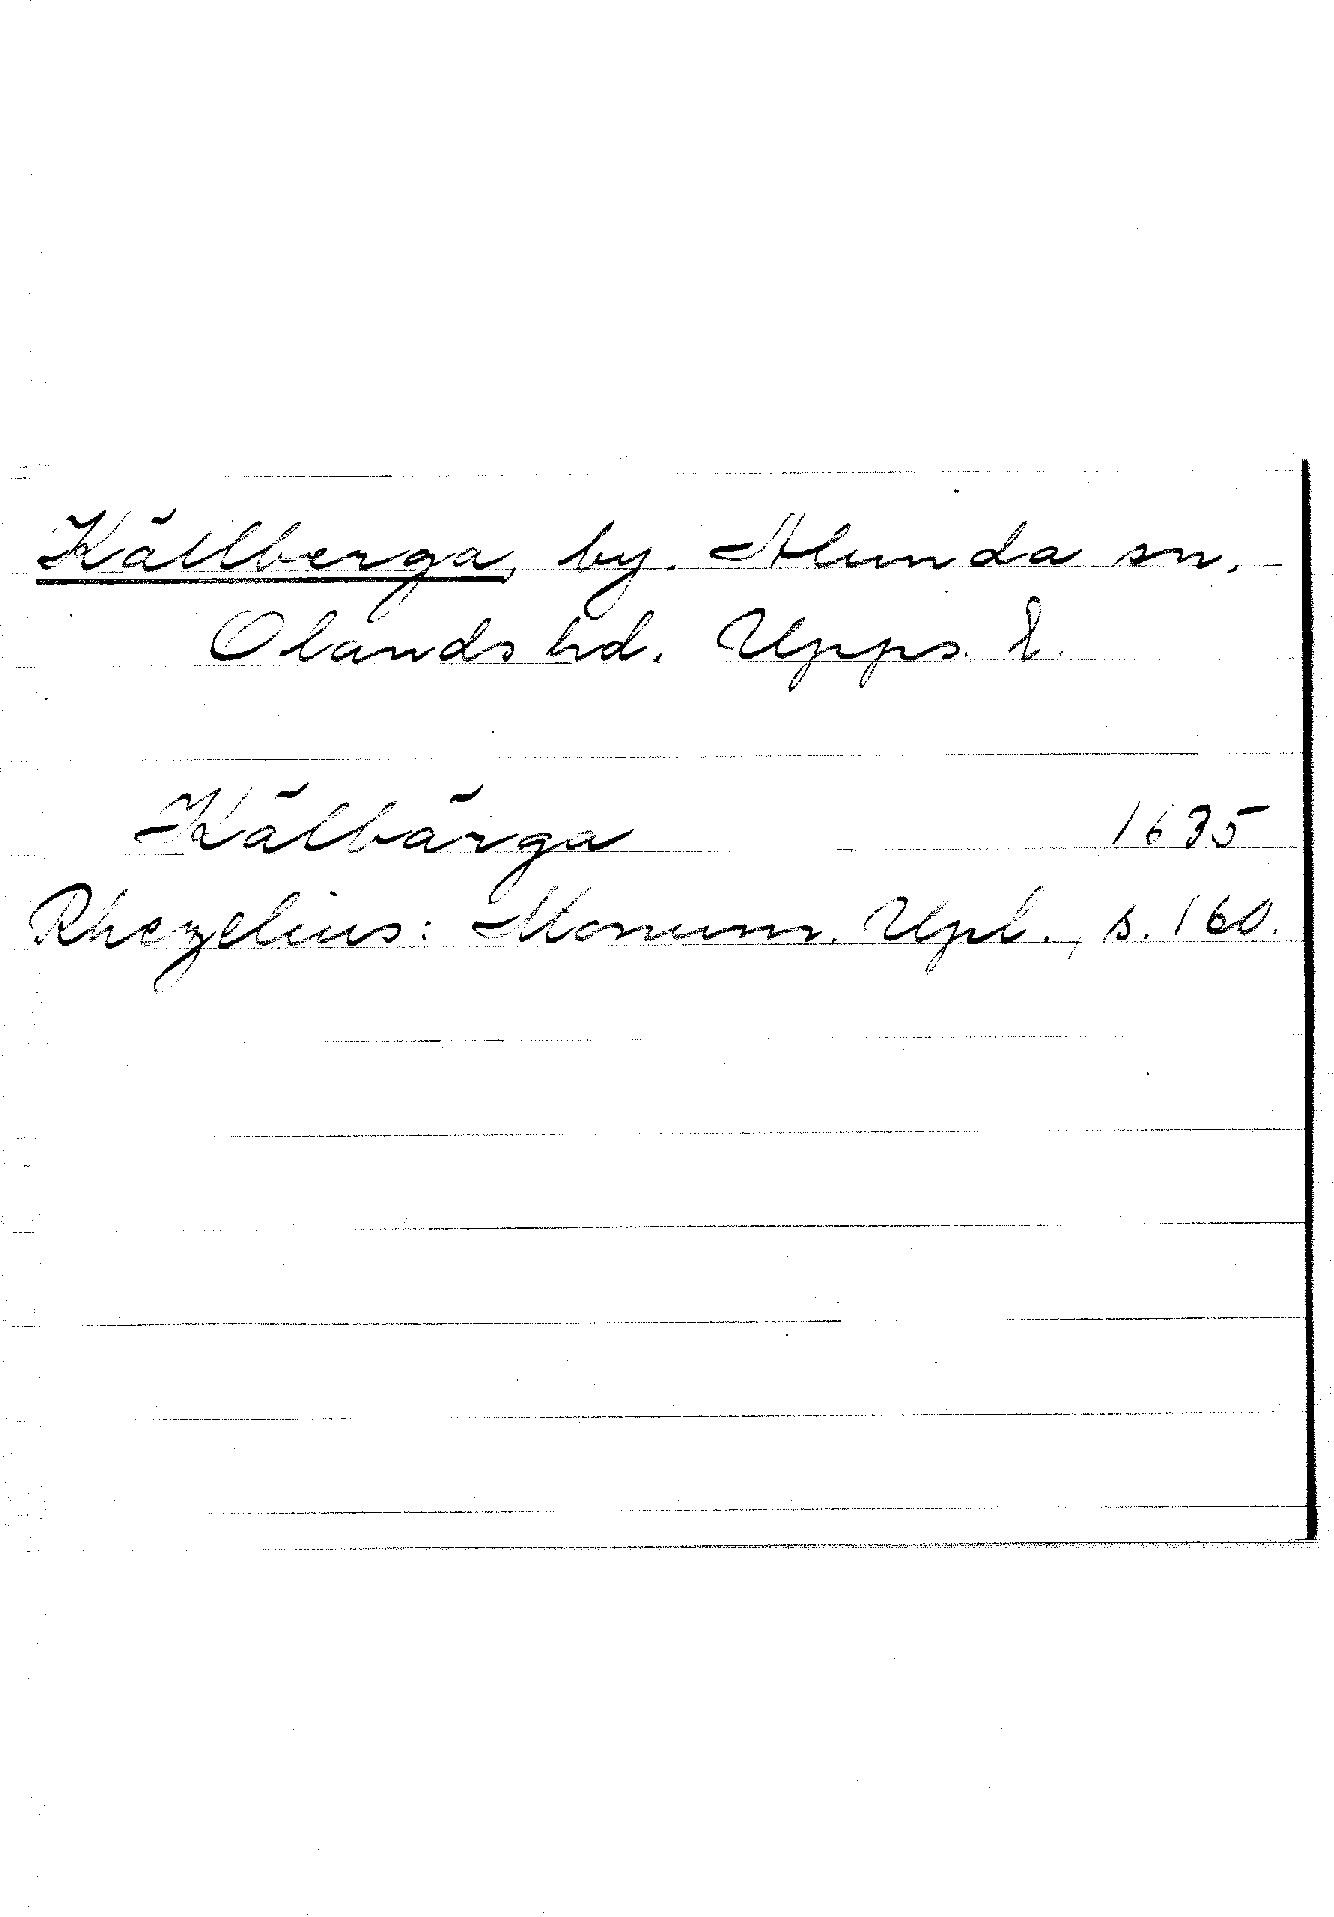 Källberga, by. Alunda sn.
Olands hd. Upps. l.
Kälbärga 1635
Rhezelius: Monum. Upl., s. 160.